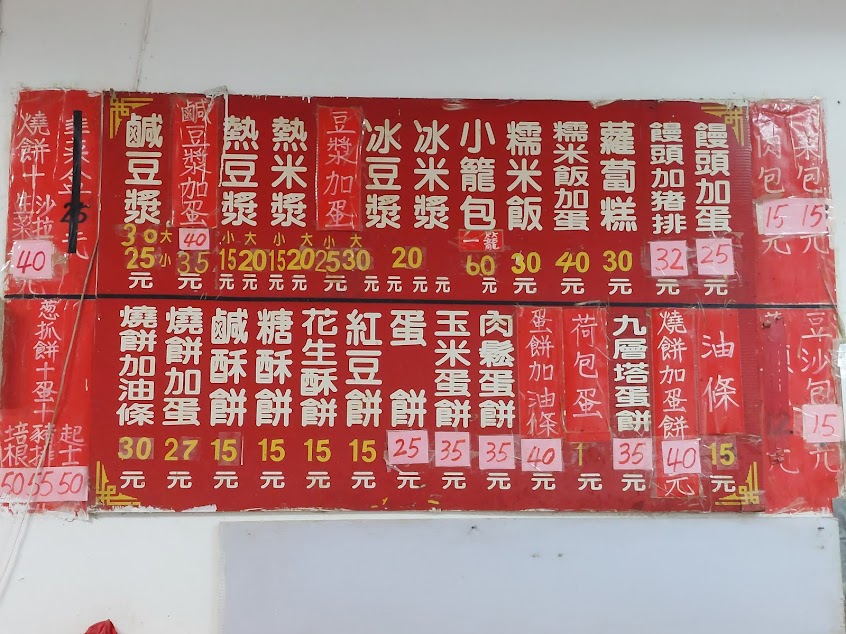 燒餅+生菜沙拉 40元
鹹豆漿 大30 小25元
鹹豆漿加蛋 大40 小35元
熱豆漿 小15 大20元
熱米漿 小15 大20元
豆漿加蛋 小25 大30元
冰豆漿 20元
冰米漿 20元
小籠包 一籠60元
糯米飯 30元
糯米飯加蛋 40元
蘿蔔糕 30元
饅頭加豬排 32元
饅頭加蛋 25元
肉包 15元
菜包 15元
蔥抓餅+蛋+
培根 50
豬排 55
起士 50
燒餅加油條 30元
燒餅加蛋 27元
鹹酥餅 15元
糖酥餅 15元
花生酥餅 15元
紅豆餅 15元
蛋餅 25元
玉米蛋餅 35元
肉鬆蛋餅 35元
蛋餅加油條 40元
荷包蛋 元
九層塔蛋餅 35元
燒餅加蛋餅 40元
油條 15元
豆沙包 15元